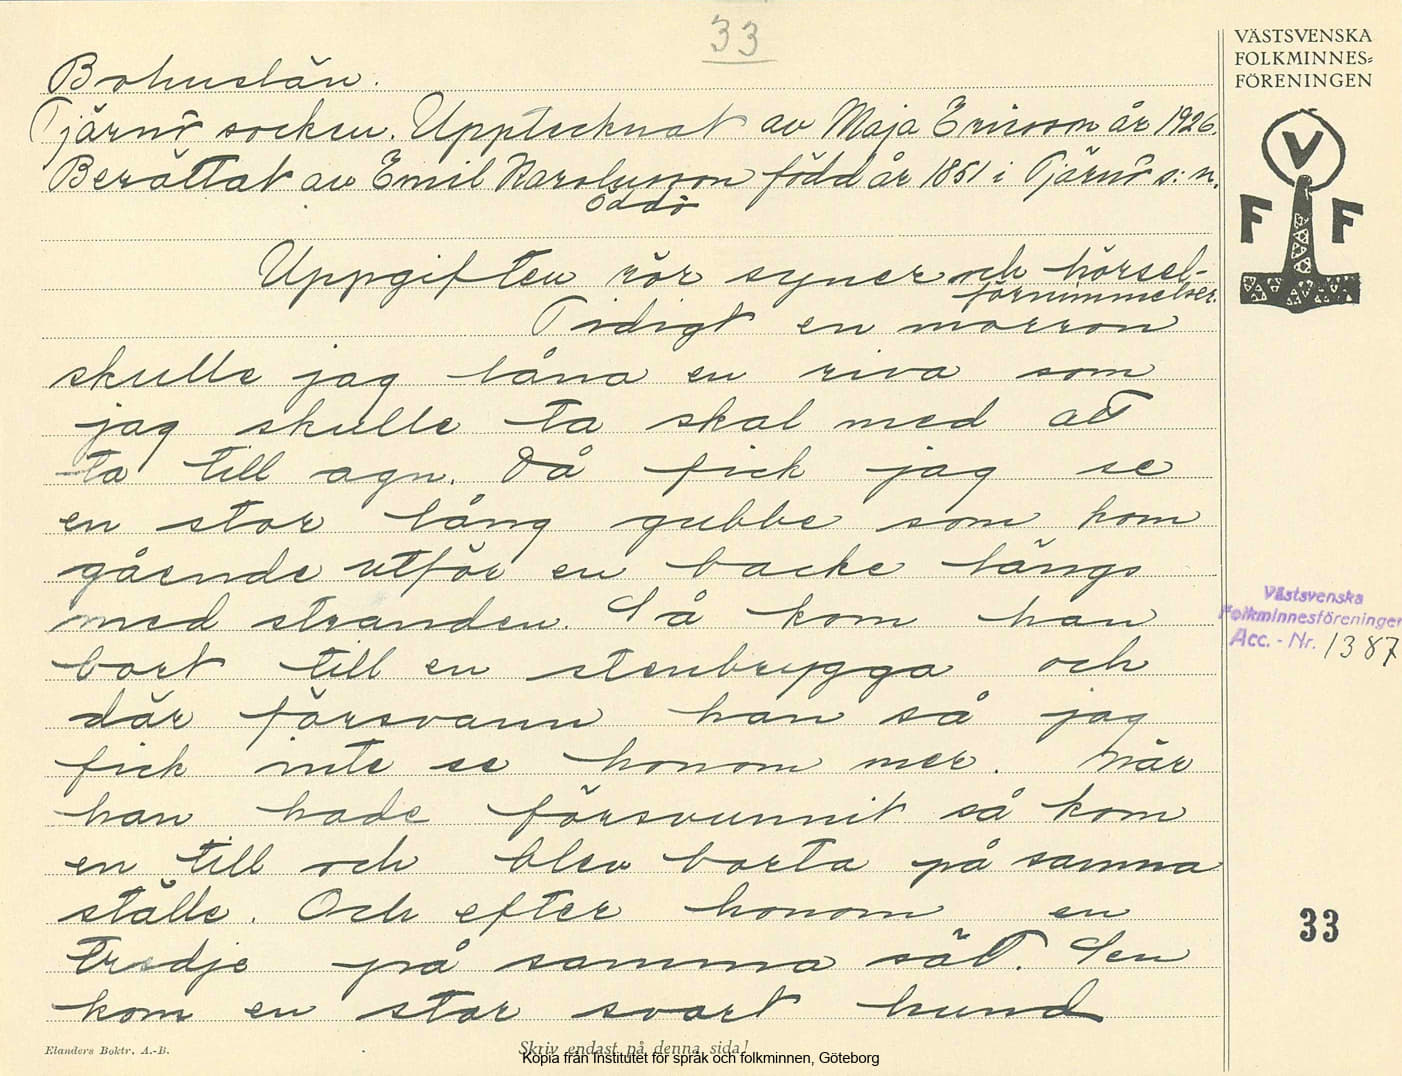 33
Bohuslän.
Tjärnö socken. Upptecknat av Maja Ericson år 1926.
Berättat av Emil Karolusson född år 1851 i Tjärnö s:n.
Öddö
Uppgiften rör syner och hörsel-
förnimmelser.
Tidigt en morron
skulle jag låna en riva som
jag skulle ta skal med att
ta till agn. Då fick jag se
en stor lång gubbe som kom
gående utför en backe längs
med stranden. Så kom han
bort till en stenbrygga och
där försvann han så jag
fick inte se honom mer. När
han hade försvunnit så kom
en till och blev borta på samma
ställe. Och efter honom en
tredje på samma sät. Sen
kom en stor svart hund
Elanders Boktr. A.-B.
Skriv endast på denna sida!
Kopia från Institutet för språk och folkminnen, Göteborg
VÄSTSVENSKA
FOLKMINNES=
FÖRENINGEN
V
F F
Västsvenska
Folkminnesföreningen
Acc. - Nr. 1387
33